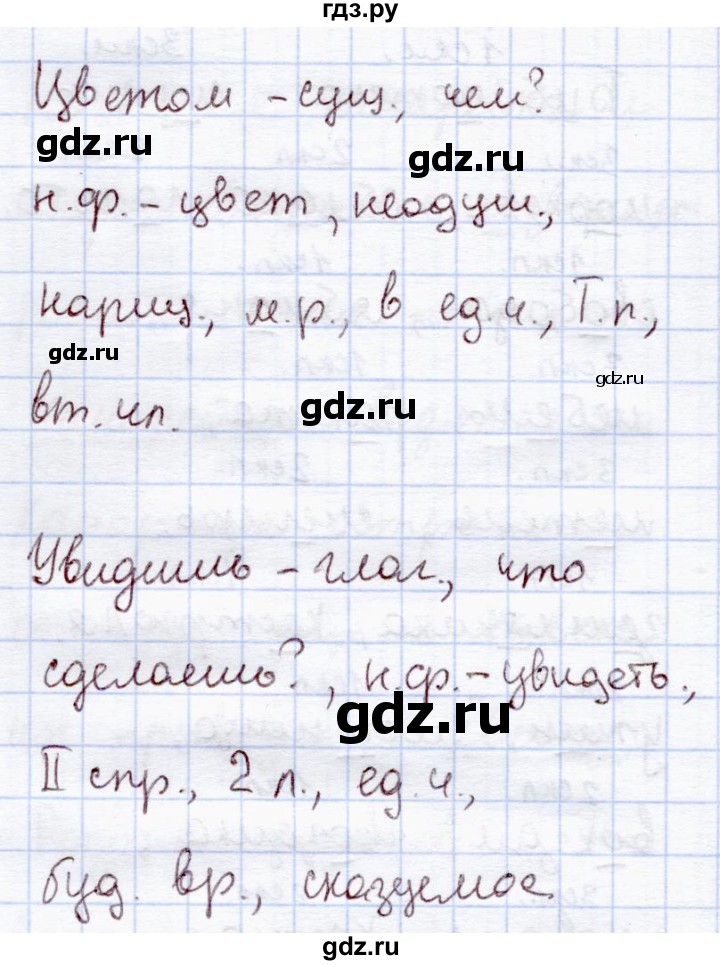 гдз.ру
Цветом – сущ., чем?
gdz.ru
gdz.ru
н.ф. – цвет, неодуш.,
нариц., м.р., в ед.ч., Т.п.,
gdz.ru
gdz.ru
gdz.ru
вт. чл.
Увидишь – глаг., что
сделаешь?, н.ф. – увидеть,
gdz.ru
II спр., 2 л., ед.ч.,
буд. вр., сказуемое
gdz.ru